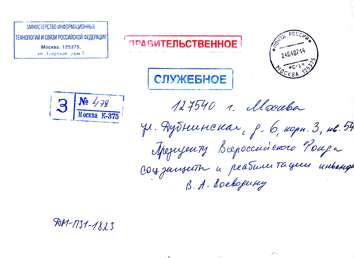 МИНИСТЕРСТВО ИНФОРМАЦИОННЫХ
ТЕХНОЛОГИЙ И СВЯЗИ РОССИЙСКОЙ ФЕДЕРАЦИИ
Москва, 125375,
ул. Тверская, дом 7
ПРАВИТЕЛЬСТВЕННОЕ
ПОЧТА РОССИИ
МОСКВА 125375
СЛУЖЕБНОЕ
З
№ 478
Москва К-375
127540 г. Москва
ул. Дубнинская, д. 6, корп. 3, кв. 54
Президенту Всероссийского Фонда
соц защиты и реабилитации инвалидов
В.А.
ДМ-П31-1823